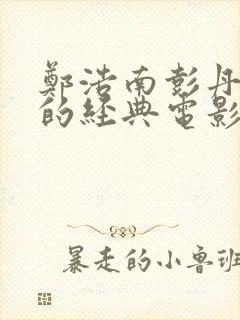 鄭浩南彭丹
的經典電影
暴走的小鲁班